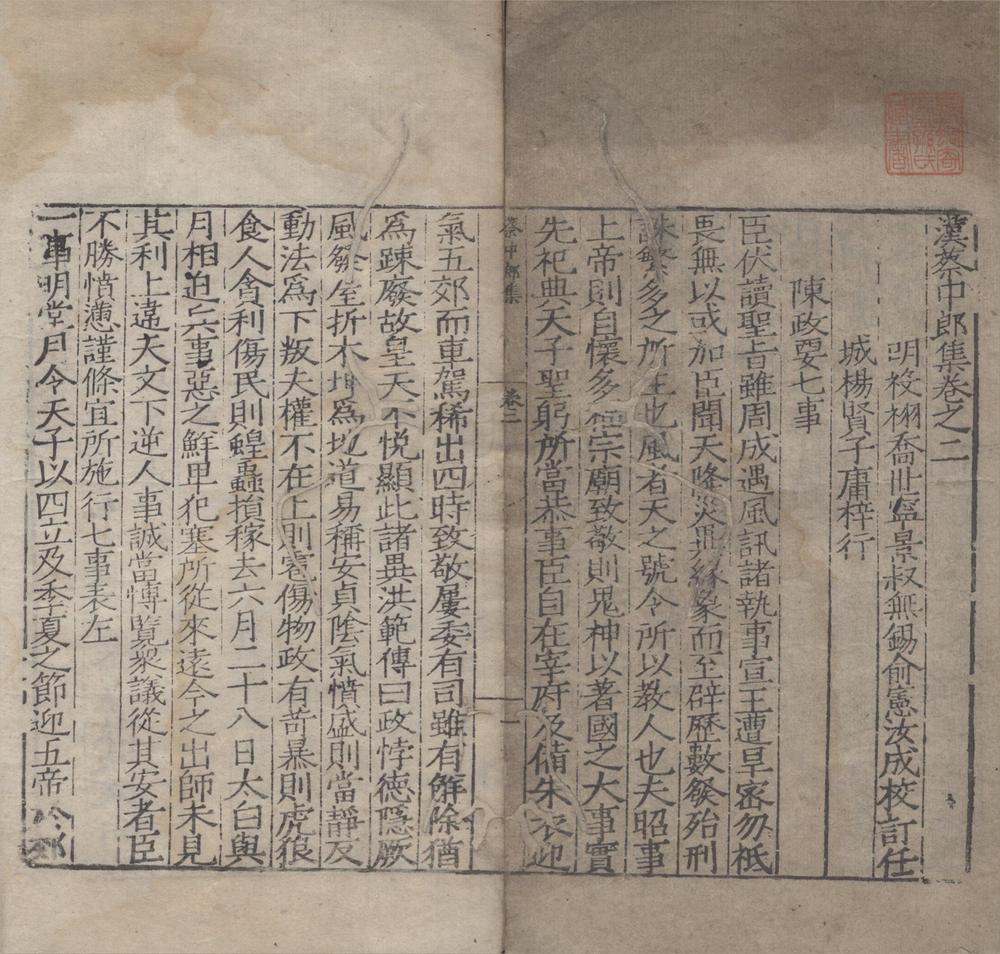 漢蔡中郎集卷之二
明祋栩喬世寧景叔無錫俞憲汝成校訂任
城楊賢子庸梓行
陳政要七事
臣伏讀聖旨雖周成遇風訊諸執事宣王遭旱密勿祗
畏無以或加臣聞天降災異緣象而至辟歷數發殆刑
誅繁多之所生也風者天之號令所以教人也夫昭事
上帝則自懷多福宗廟致敬則鬼神以著國之大事實
先祀典天子聖躬所當恭事臣自在宰府及備朱衣迎
蔡中郎集
卷二
一
氣五郊而車駕稀出四時致敬屢委有司雖有解除猶
為疎廢故皇天不悅顯此諸異洪範傳曰政悖德隱厥
風發屋折木坤為地道易稱安貞陰氣憤盛則當靜反
動法為下叛夫權不在上則雹傷物政有苛暴則虎狼
食人貪利傷民則蝗蟲損稼去六月二十八日太白與
月相迫六事惡之鮮卑犯塞所從來遠今之出師未見
其利上違天文下逆人事誠當博覽衆議從其安者臣
不勝憤懣謹條宜所施行七事表左
一事明堂月令天子以四立及季夏之節迎五帝